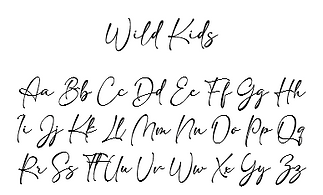 Wild Kids
Aa Bb Cc Dd Ee Ff Gg Hh
Ii Jj Kk Ll Mm Nn Oo Pp Qq
Rr Ss Tt Uu Vv Ww Xx Yy Zz